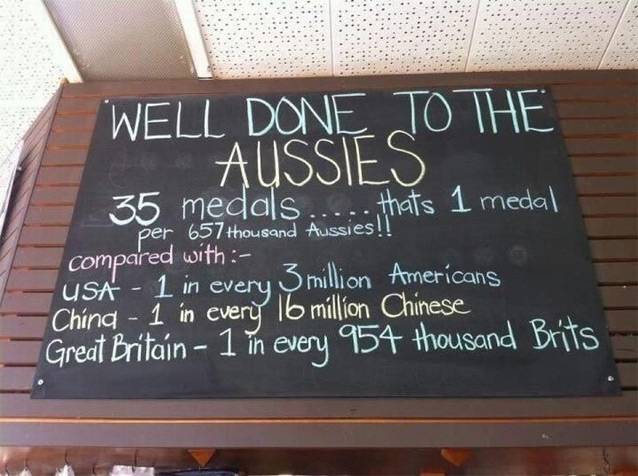 WELL DONE TO THE
AUSSIES
35 medals ..... thats 1 medal
per 657 thousand Aussies!!
compared with :-
USA - 1 in every 3 million Americans
China - 1 in every 16 million Chinese
Great Britain - 1 in every 954 thousand Brits